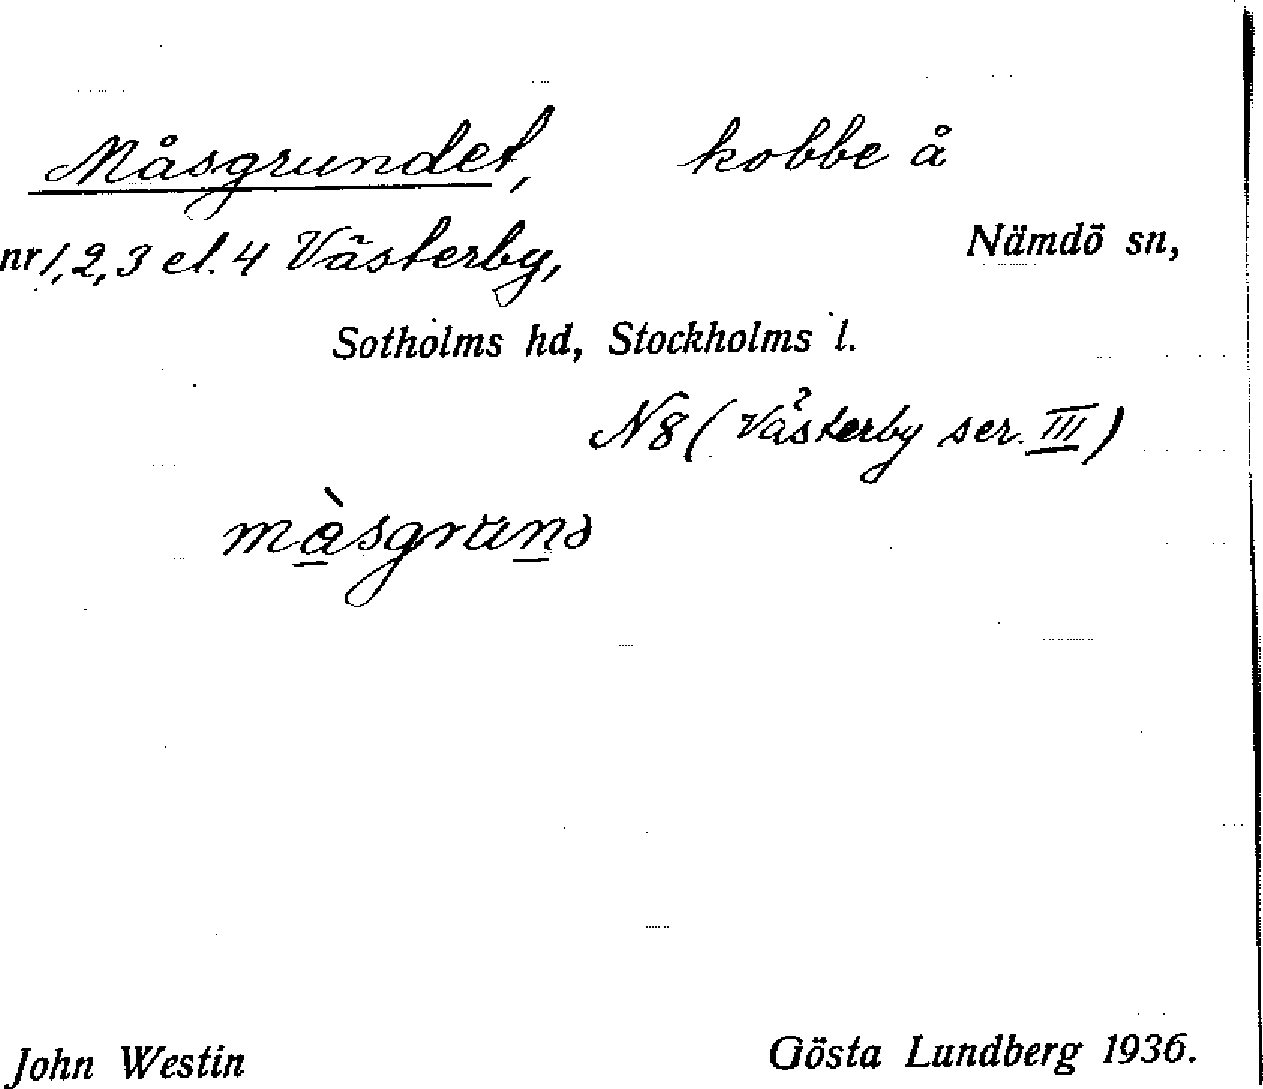 Måsgrundet, kobbe å
nr 1, 2, 3 el. 4 Västerby, Nämdö sn,
Sotholms hd, Stockholms l.
N8 (Västerby ser. III)
John Westin Gösta Lundberg 1936.